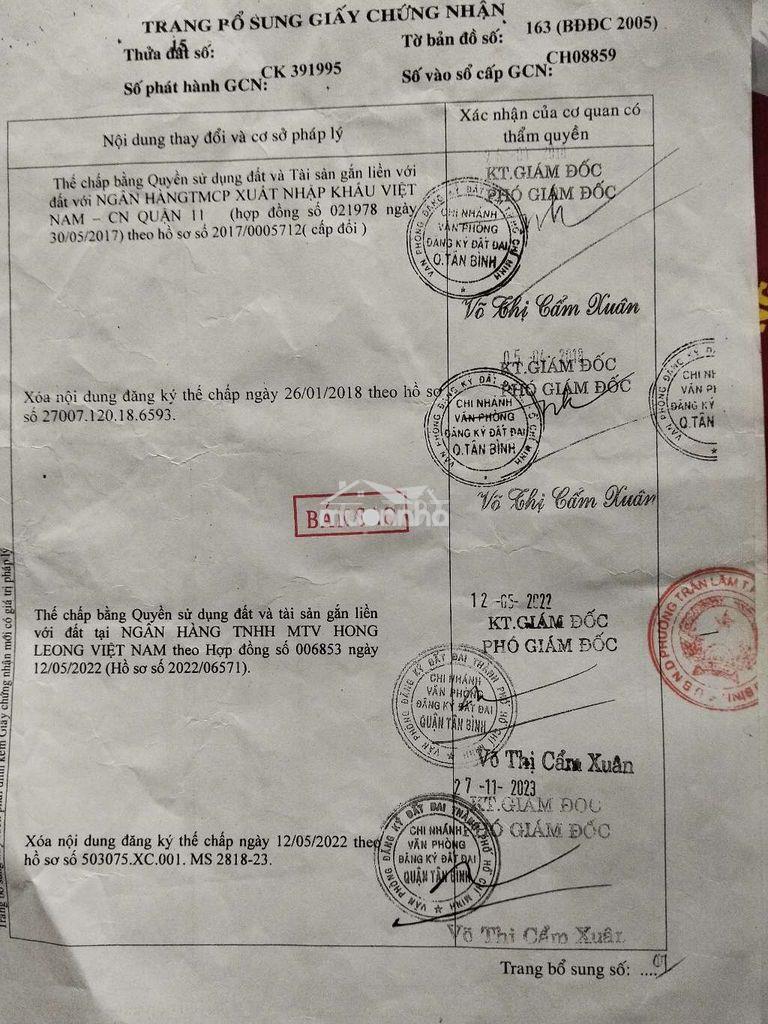 TRANG BỔ SUNG GIẤY CHỨNG NHẬN
Thửa đất số: 15
Tờ bản đồ số: 163 (BĐĐC 2005)
Số phát hành GCN: CK 391995
Số vào sổ cấp GCN: CH08859
Nội dung thay đổi và cơ sở pháp lý
Xác nhận của cơ quan có
thẩm quyền
Thế chấp bằng Quyền sử dụng đất và Tài sản gắn liền với
đất với NGÂN HÀNGTMCP XUẤT NHẬP KHẨU VIỆT
NAM – CN QUẬN 11 (hợp đồng số 021978 ngày
30/05/2017) theo hồ sơ số 2017/0005712( cấp đổi )
KT.GIÁM ĐỐC
PHÓ GIÁM ĐỐC
VĂN PHÒNG ĐĂNG KÝ ĐẤT ĐAI T.P HỒ CHÍ MINH
CHI NHÁNH
VĂN PHÒNG
ĐĂNG KÝ ĐẤT ĐAI
Q.TÂN BÌNH
Võ Thị Cẩm Xuân
Xóa nội dung đăng ký thế chấp ngày 26/01/2018 theo hồ sơ
số 27007.120.18.6593.
05 -04- 2018
KT.GIÁM ĐỐC
PHÓ GIÁM ĐỐC
CHI NHÁNH
VĂN PHÒNG
ĐĂNG KÝ ĐẤT ĐAI
Q.TÂN BÌNH
Võ Thị Cẩm Xuân
CHI NH
VĂN PH
ĐĂNG KÝ
Q.TÂN
BẢN SAO
muonnha
Thế chấp bằng Quyền sử dụng đất và tài sản gắn liền
với đất tại NGÂN HÀNG TNHH MTV HONG
LEONG VIỆT NAM theo Hợp đồng số 006853 ngày
12/05/2022 (Hồ sơ số 2022/06571).
12 -05- 2022
KT.GIÁM ĐỐC
PHÓ GIÁM ĐỐC
VĂN PHÒNG ĐĂNG KÝ ĐẤT ĐAI THÀNH PHỐ HỒ CHÍ MINH
CHI NHÁNH
VĂN PHÒNG
ĐĂNG KÝ ĐẤT ĐAI
QUẬN TÂN BÌNH
Võ Thị Cẩm Xuân
U.B.N.D PHƯỜNG TRẦN LÂM
Xóa nội dung đăng ký thế chấp ngày 12/05/2022 theo
hồ sơ số 503075.XC.001. MS 2818-23.
27 -11- 2023
KT.GIÁM ĐỐC
PHÓ GIÁM ĐỐC
VĂN PHÒNG ĐĂNG KÝ ĐẤT ĐAI THÀNH PHỐ HỒ CHÍ MINH
CHI NHÁNH
VĂN PHÒNG
ĐĂNG KÝ ĐẤT ĐAI
QUẬN TÂN BÌNH
Võ Thị Cẩm Xuân
Trang bổ sung số: ....01
đính kèm Giấy chứng nhận mới có giá trị pháp lý